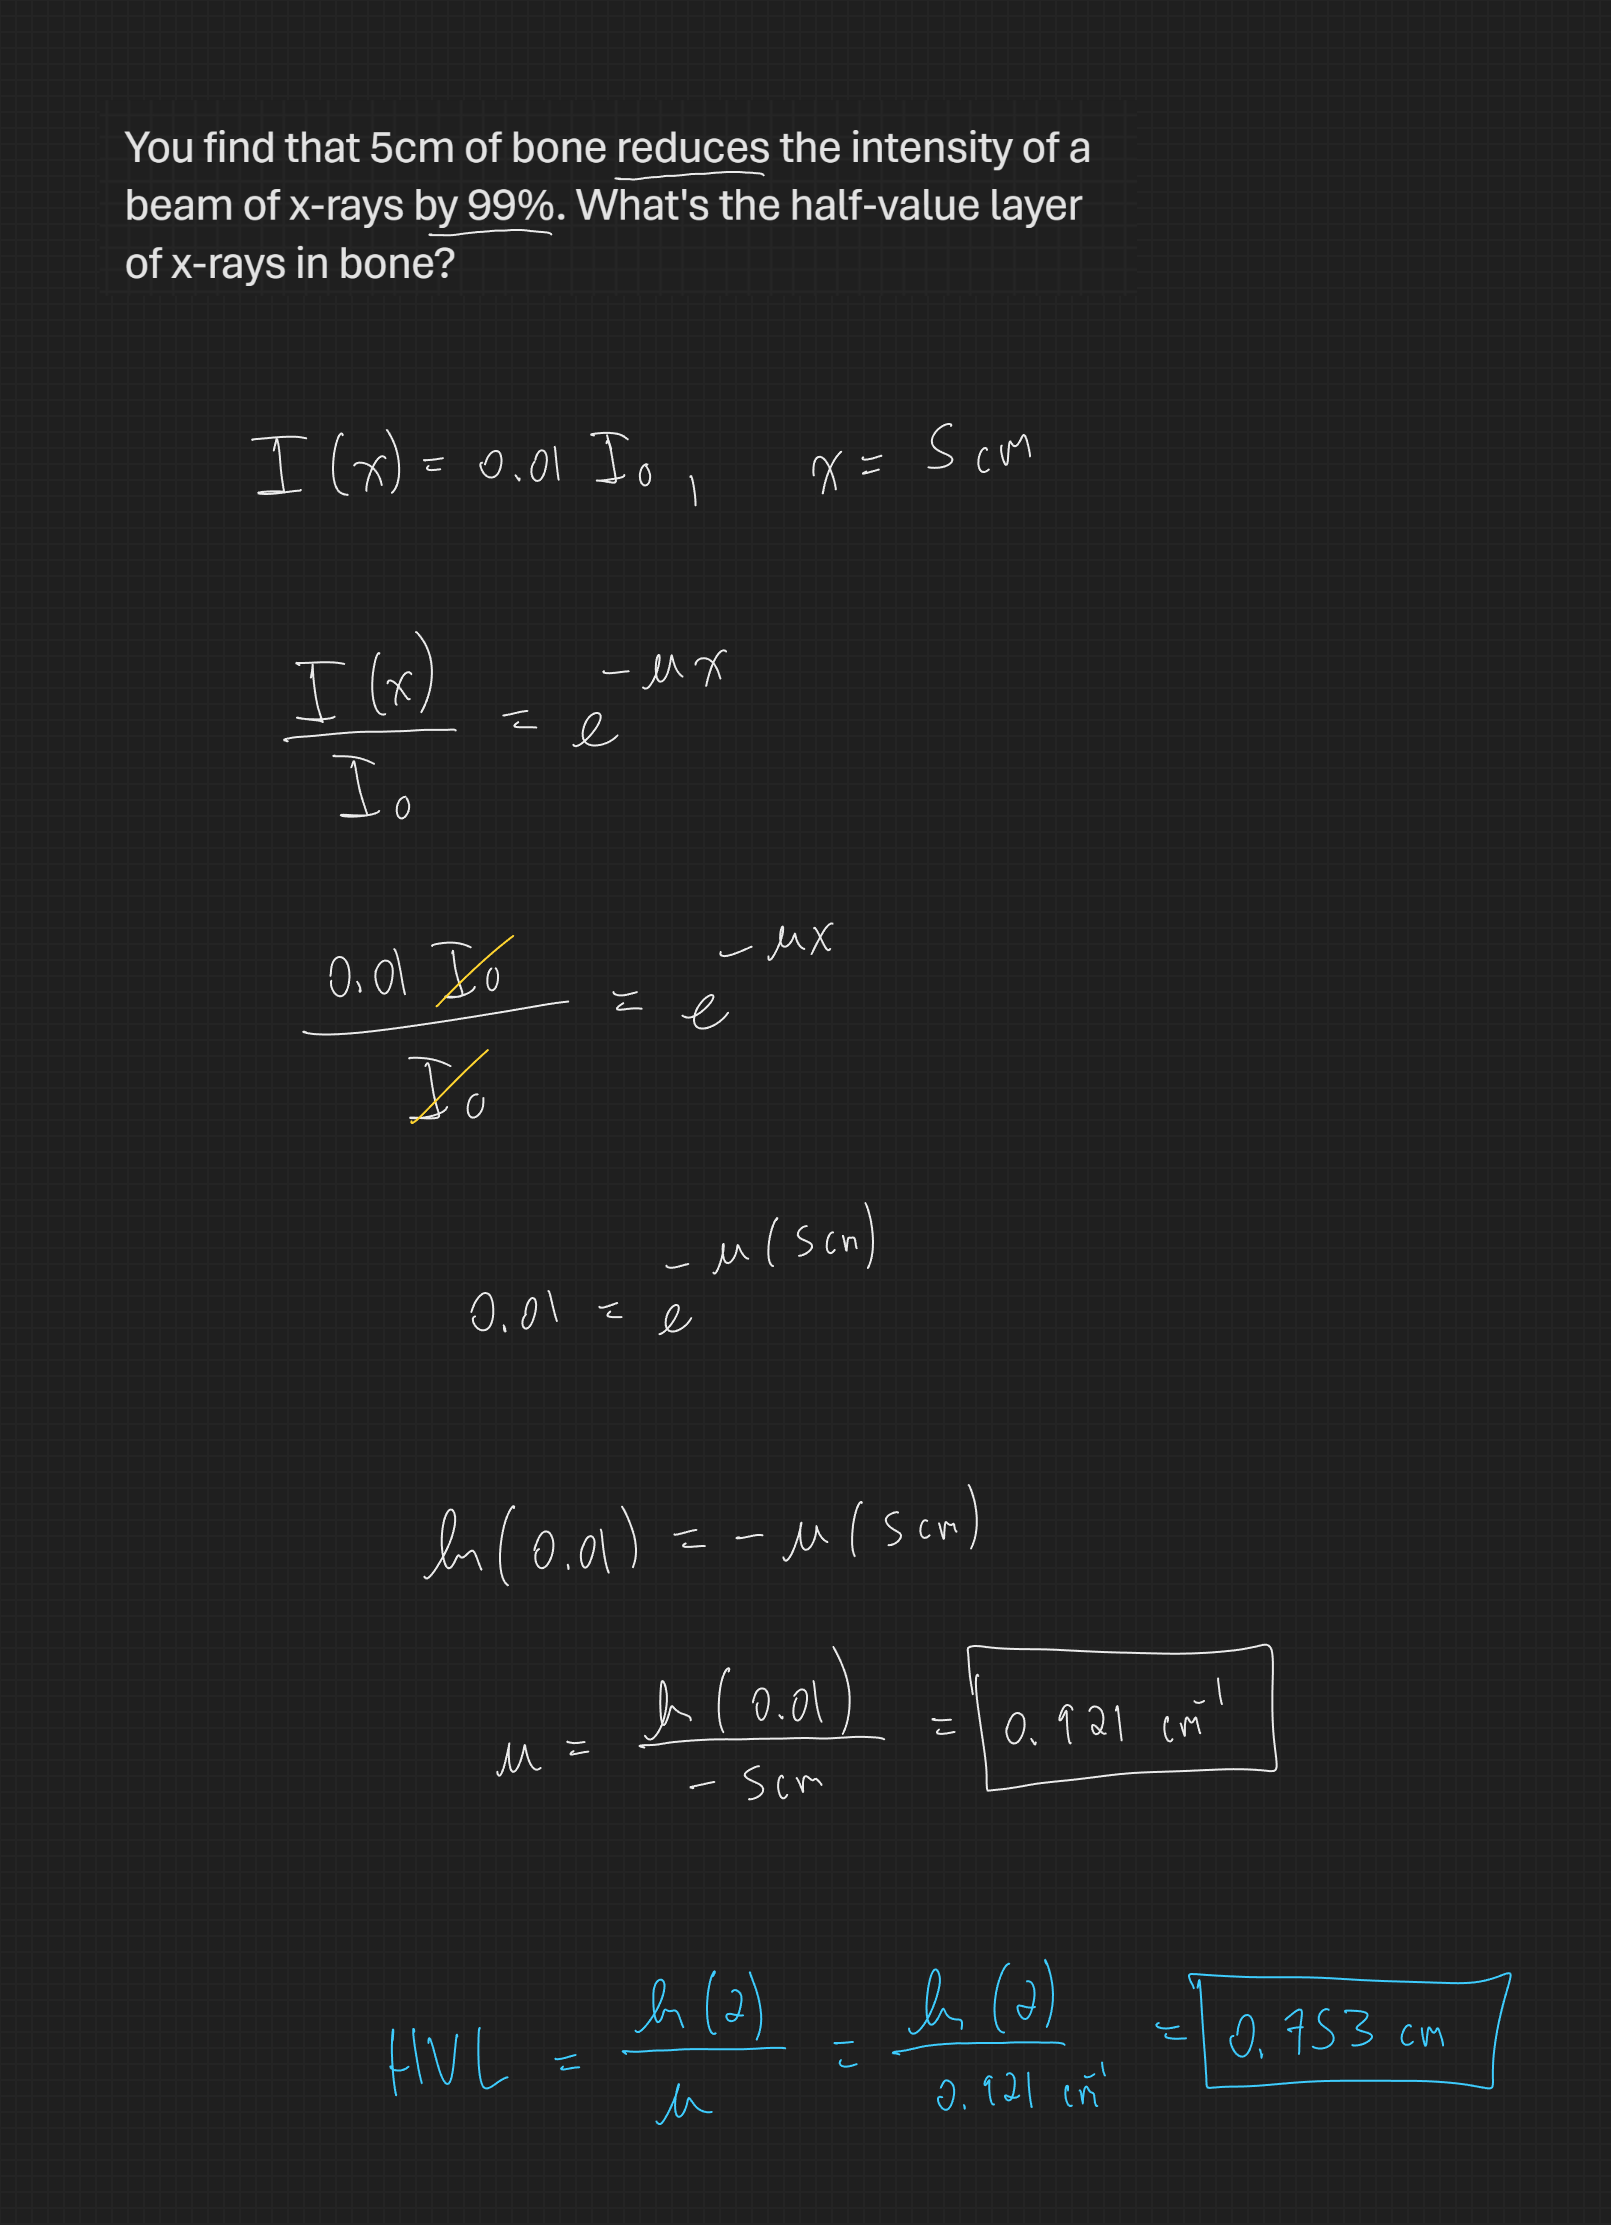 You find that 5cm of bone reduces the intensity of a
beam of x-rays by 99%. What's the half-value layer
of x-rays in bone?
I(x) = 0.01 I₀ , x = 5 cm
I(x) / I₀ = e^(-μx)
0.01 I₀ / I₀ = e^(-μx)
0.01 = e^(-μ(5cm))
ln(0.01) = -μ(5cm)
μ = ln(0.01) / -5cm = 0.921 cm⁻¹
HVL = ln(2) / μ = ln(2) / 0.921 cm⁻¹ = 0.753 cm